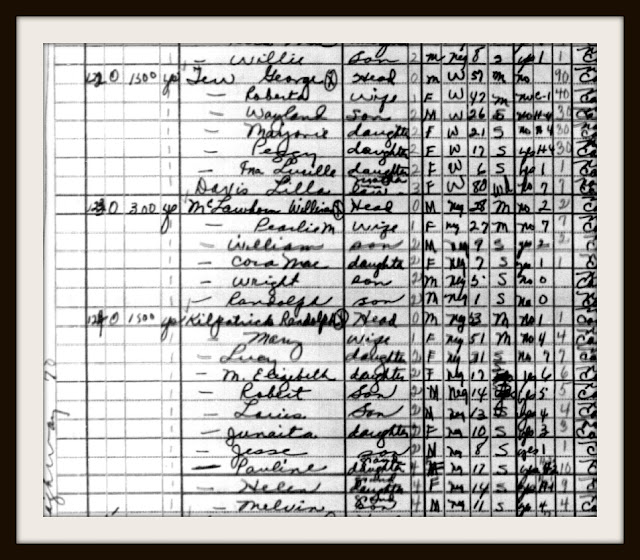 — Willie son 2 M Neg 8 S yes 1 1
122 O 1500 yes Tew George Head 0 M W 57 M no 90
— Roberta Wife 1 F W 47 M no C-1 40
— Wayland son 2 M W 26 S no H-4 30
— Marjorie daughter 2 F W 21 S no H-4 30
— Peggy daughter 2 F W 17 S yes H-4 30
— Ina Lucille daughter 2 F W 6 S yes 1 1
Davis Lilla 3 F W 80 Wd no 7 7
123 O 300 yes McLawhorn William Head 0 M Neg 28 M no 2 2
— Pearlie M Wife 1 F Neg 27 M no 7 7
— William son 2 M Neg 9 S yes 2 2
— Cora Mae daughter 2 F Neg 7 S no 1 1
— Wright son 2 M Neg 5 S no 0
— Randolph son 2 M Neg 1 S no 0
124 O 1500 yes Kilpatrick Randolph Head 0 M Neg 53 M no 1 1
— Mary Wife 1 F Neg 51 M no 4 4
— Lucy daughter 2 F Neg 31 S no 7 7
— M. Elizibeth daughter 2 F Neg 17 yes 6 6
— Robert Son 2 M Neg 14 yes 5 5
— Son 2 M Neg 13 S yes 4 4
— Junaita daughter 2 F Neg 10 S yes 3 3
— Jesse son 2 M Neg 8 S yes 1 1
— Pauline grand daughter 4 F Neg 17 S yes 10
— Helen grand daughter 4 F Neg 14 S yes 9
— Melvin grand son 4 M Neg 11 S yes 4 4
ighway 70